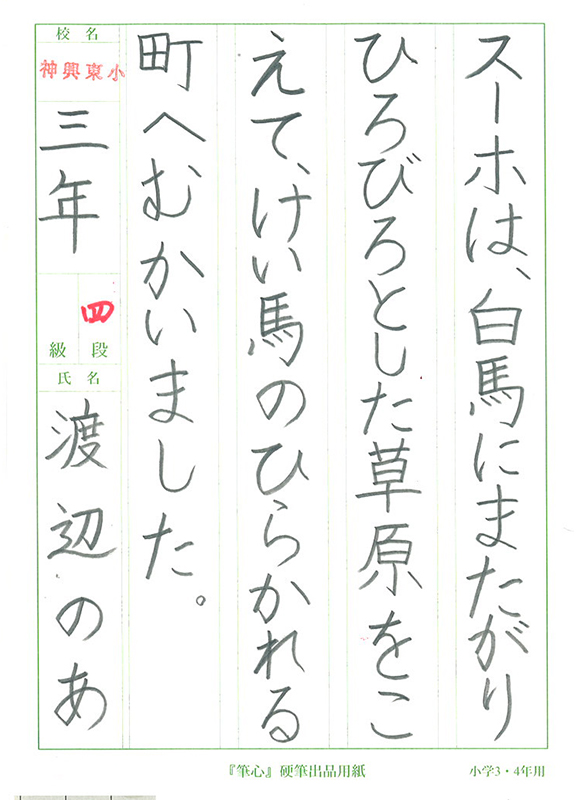 スーホは、白馬にまたがり
ひろびろとした草原をこ
えて、けい馬のひらかれる
町へむかいました。
校名
神興東小
三年
四
段
級
氏名
渡辺のあ
『筆心』硬筆出品用紙
小学3・4年用